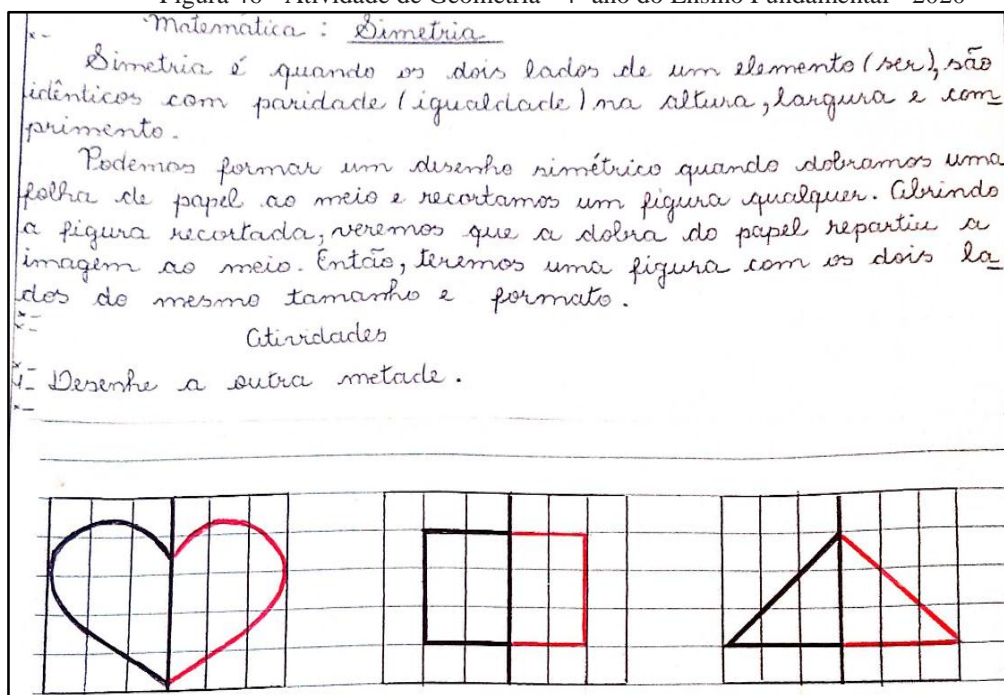 Figura 46 - Atividade de Geometria - 4º ano do Ensino Fundamental - 2020
Matemática : Simetria
Simetria é quando os dois lados de um elemento (ser), são
idênticos com paridade (igualdade) na altura, largura e com
primento.
Podemos formar um desenho simétrico quando dobramos uma
folha de papel ao meio e recortamos um figura qualquer. Abrindo
a figura recortada, veremos que a dobra do papel repartiu a
imagem ao meio. Então, teremos uma figura com os dois la
dos do mesmo tamanho e formato.
Atividades
1- Desenhe a outra metade.